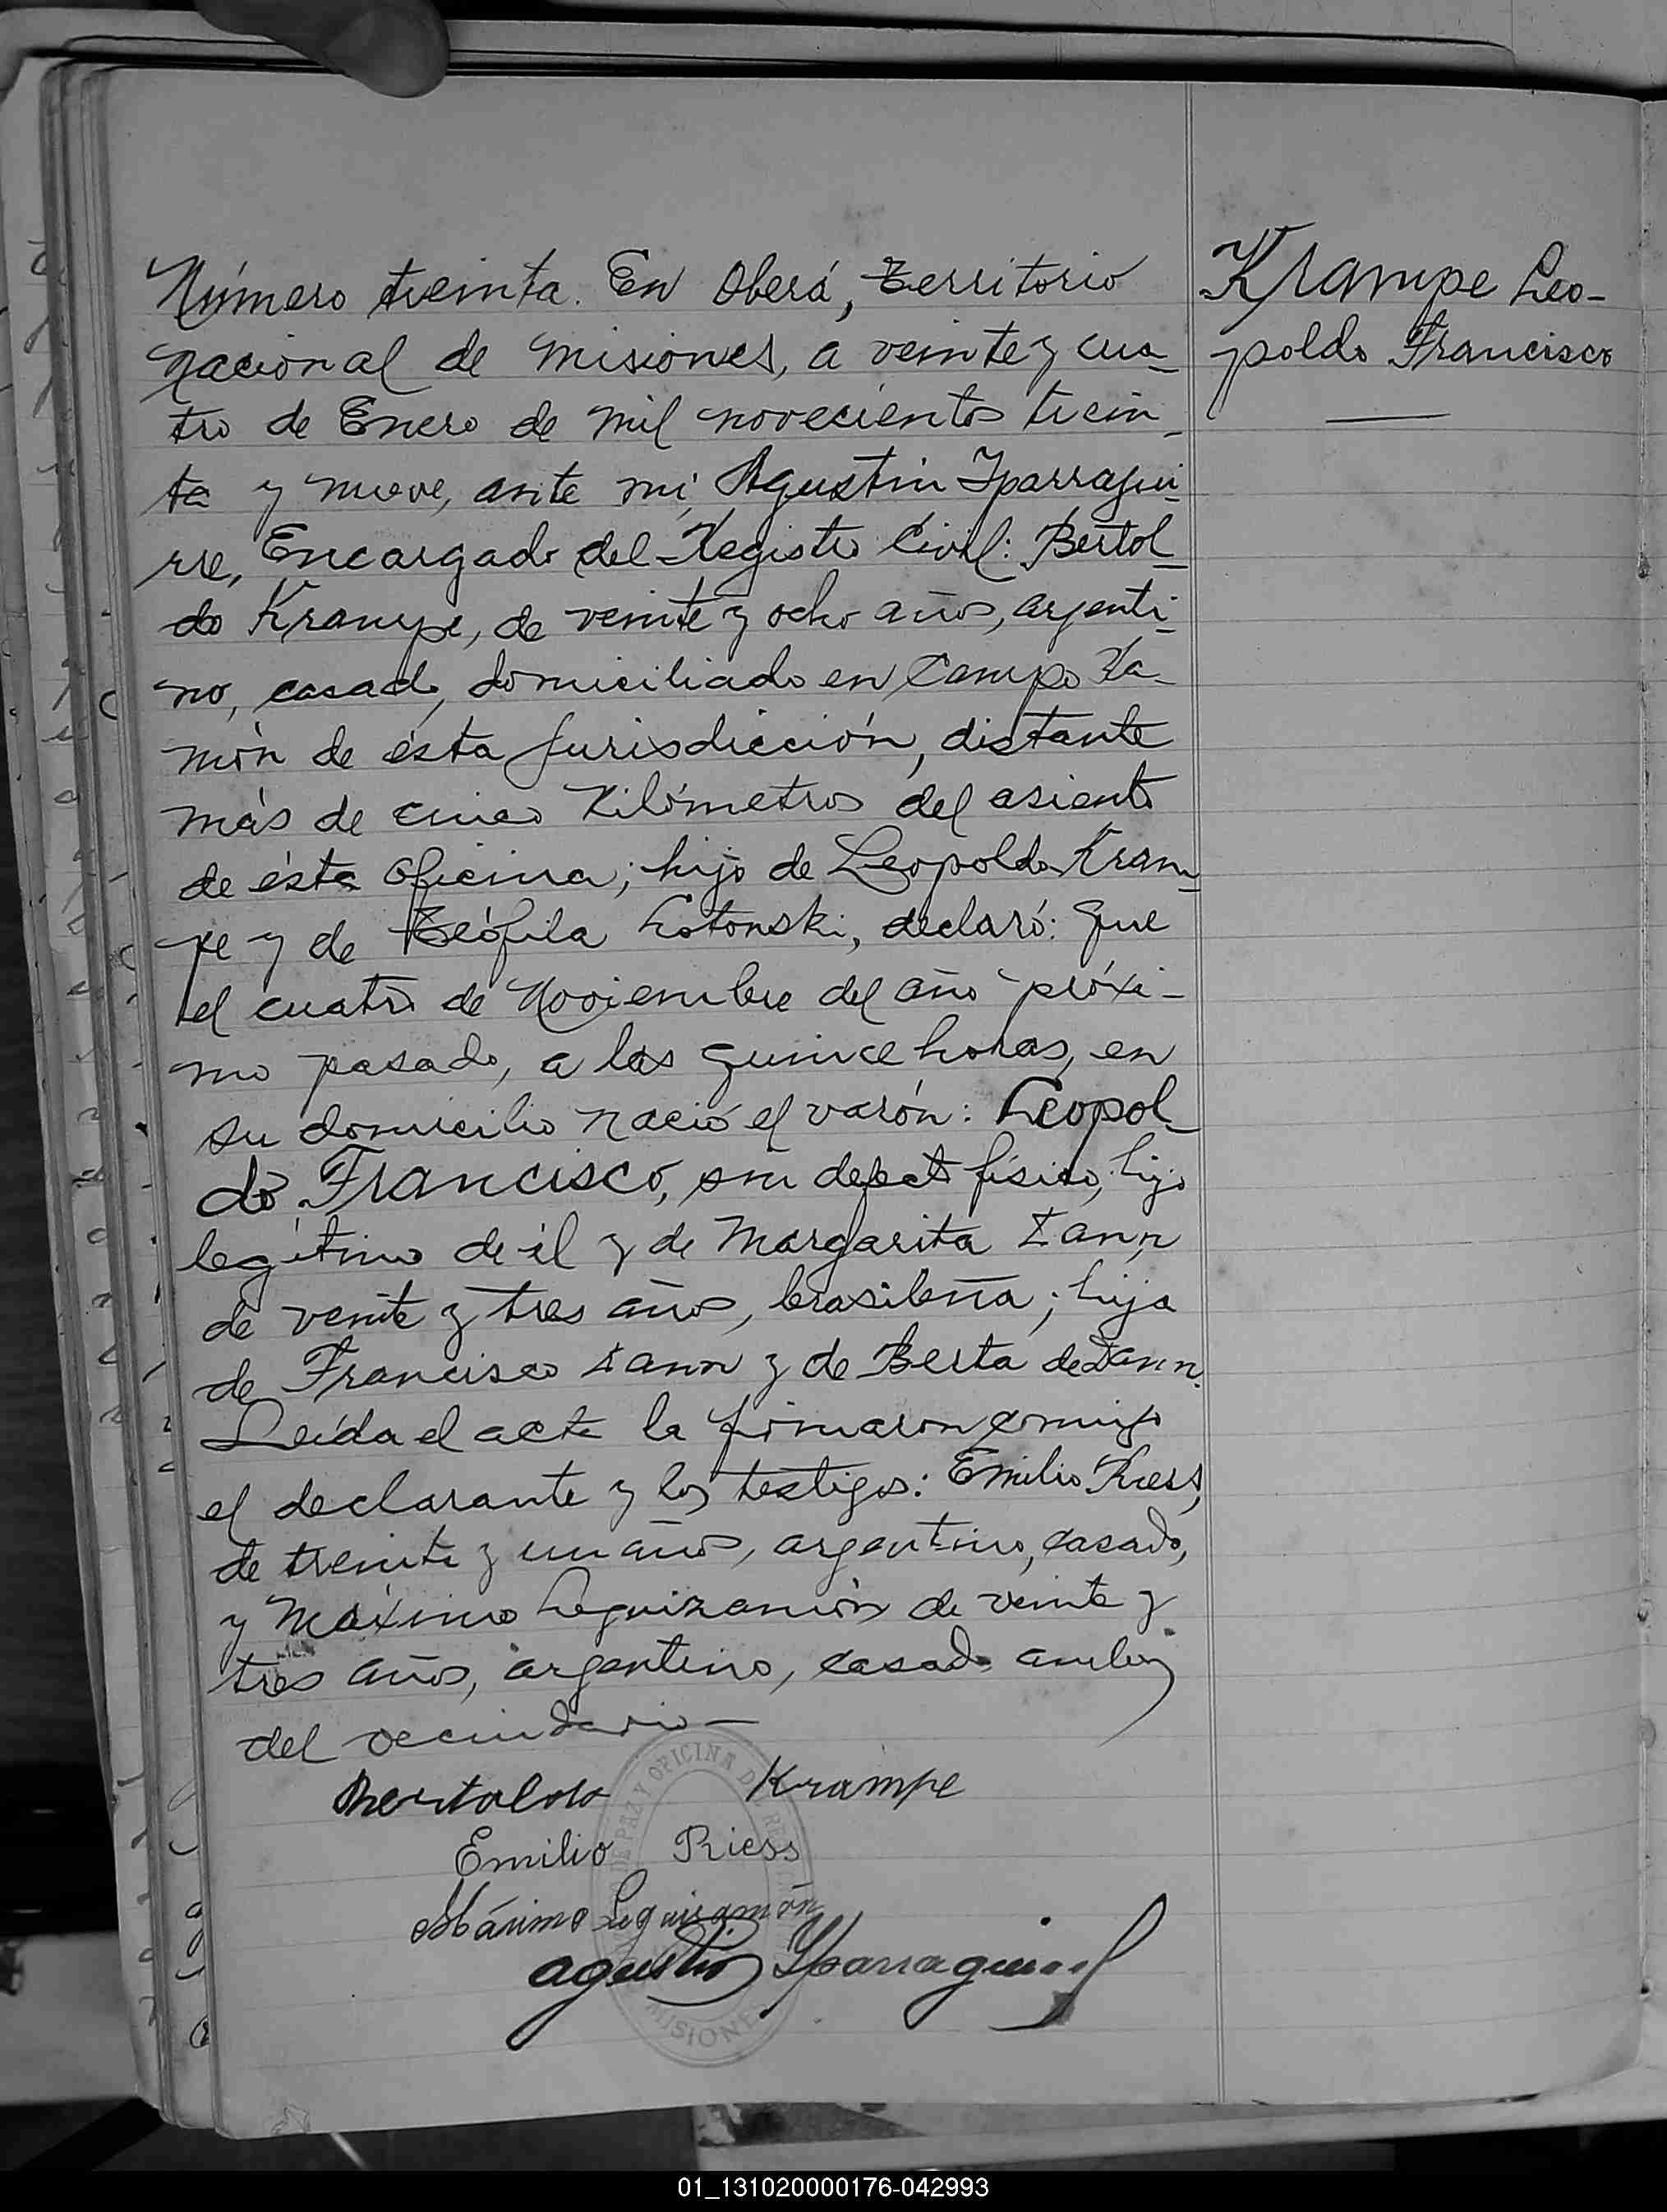 Krampe Leo-
poldo Francisco
Número treinta. En Oberá, Territorio
Nacional de Misiones, a veinte y cua-
tro de Enero de mil novecientos trein-
ta y nueve, ante mi, Agustín Yparragui-
rre, Encargado del Registro Civil: Bertol-
do Krampe, de veinte y ocho años, argenti-
no, casado, domiciliado en Campo Ra-
món de ésta jurisdicción, distante
más de cinco Kilómetros del asiento
de ésta Oficina; hijo de Leopoldo Kram-
pe y de Teófila Lotonski, declaró: Que
el cuatro de Noviembre del año próxi-
mo pasado, a las quince horas, en
su domicilio nació el varón: Leopol-
do Francisco, sin defecto físico, hijo
legítimo de él y de Margarita
de veinte y tres años, brasileña; hija
de Francisco y de Berta de
Leída el acta la firmaron conmigo
el declarante y los testigos: Emilio Riess,
de treinta y un años, argentino, casado,
y Máximo Leguizamón de veinte y
tres años, argentino, casado ambos
del vecindario—
Bertoldo Krampe
Emilio Riess
Máximo Leguizamón
Agustín Yparraguirre
DE PAZ Y OFICINA DE
MISIONES
01_131020000176-042993